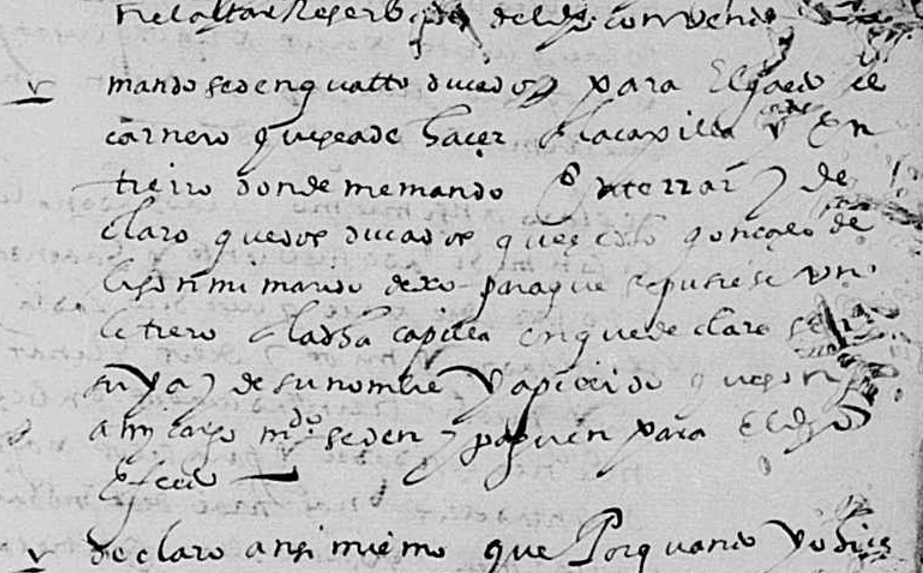 del dho convento
mando se den quatro ducados para el gasto de
carnero que se a de hacer en la capilla y en
tierro donde me mando enterrar y de
claro que dos ducados que el dho gonçalo de
mi marido dexo para que se pusiese un
letrero en la dha capilla en que declare ser
suya y de su nombre y apellido que son
a mi cargo mdo se den y paguen para el dho
efeto
declaro ansi mismo que Por quanto yo